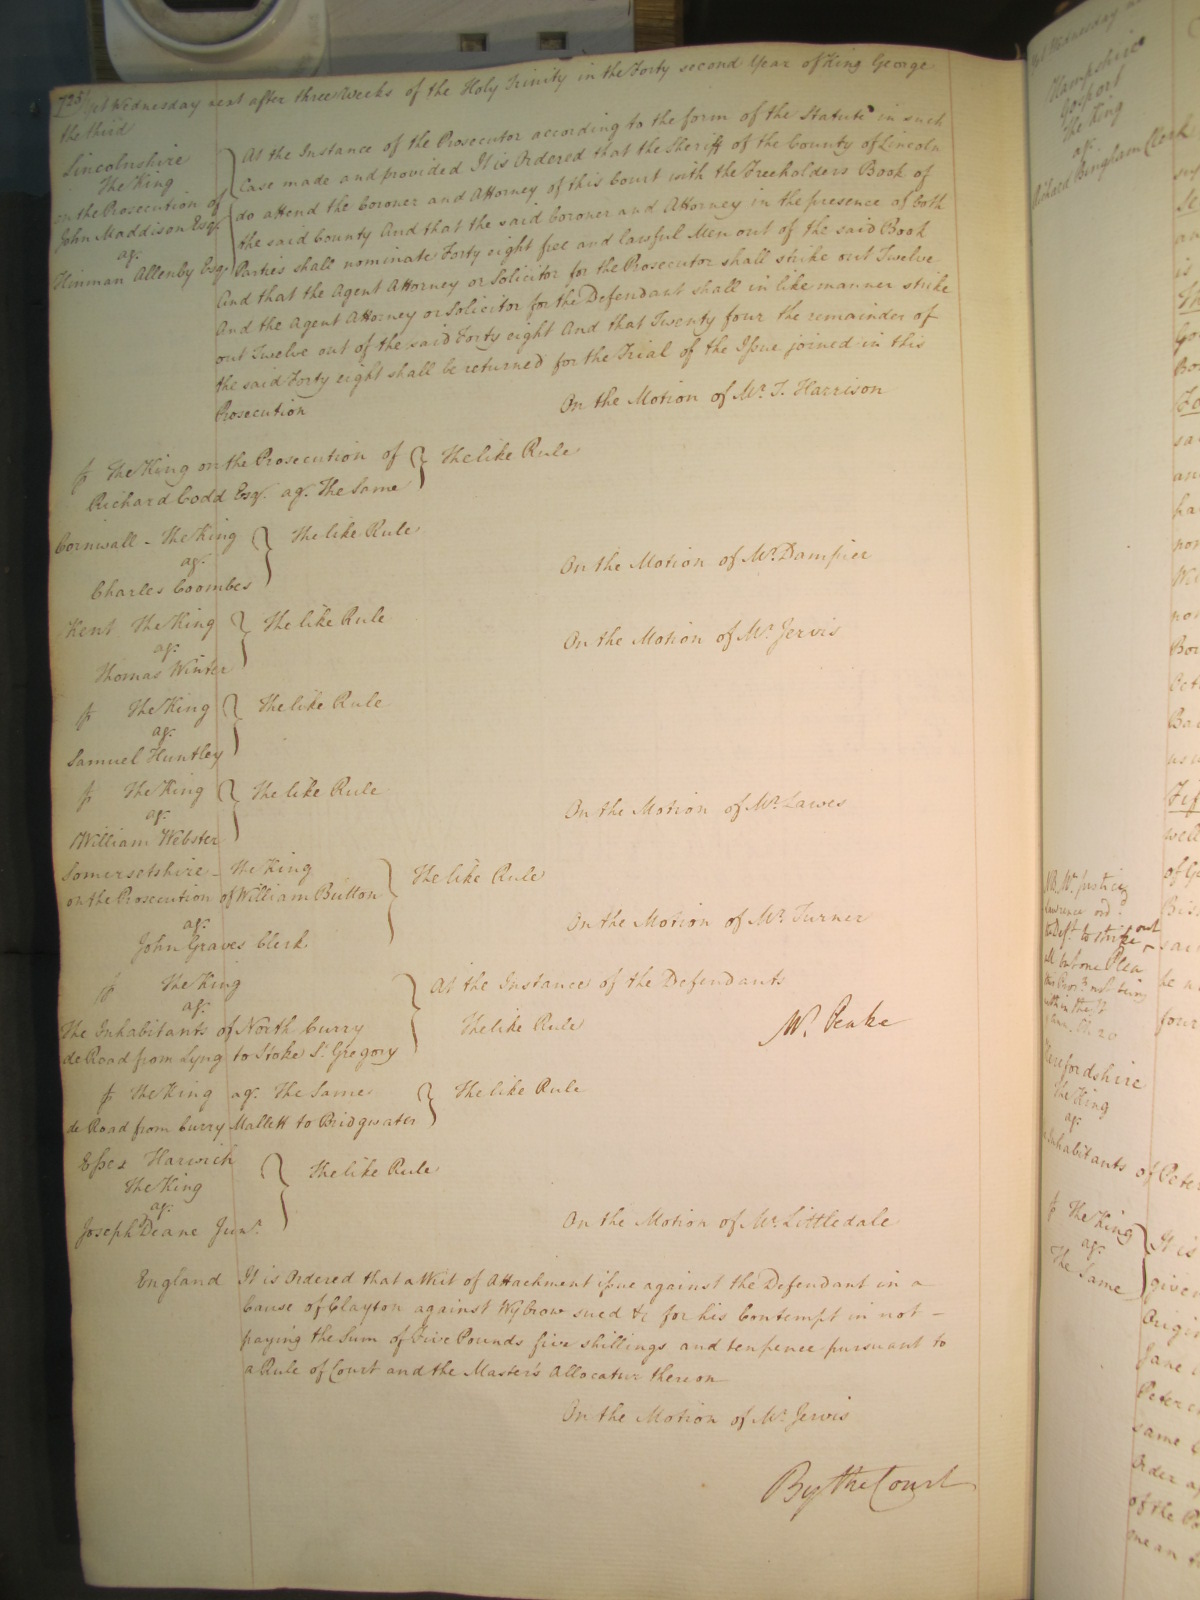 725 / yet Wednesday next after three Weeks of the Holy Trinity in the Forty second Year of King George
the third
Lincolnshire
The King
on the Prosecution of
John Maddison Esqr.
agt.
Hinman Allenby Esqr.
At the Instance of the Prosecutor according to the form of the Statute in such
Case made and provided It is Ordered that the Sheriff of the County of Lincoln
do attend the Coroner and Attorney of this Court with the Freeholders Book of
the said County And that the said Coroner and Attorney in the presence of both
Parties shall nominate Forty eight free and lawful Men out of the said Book
And that the Agent Attorney or Solicitor for the Prosecutor shall strike out Twelve
And the Agent Attorney or Solicitor for the Defendant shall in like manner strike
out Twelve out of the said Forty eight And that Twenty four the remainder of
the said Forty eight shall be returned for the Trial of the Issue joined in this
Prosecution
On the Motion of Mr. T. Harrison
The King on the Prosecution of
Richard Codd Esqr. agt. The Same
The like Rule
Cornwall - The King
agt.
Charles Coombes
The like Rule
On the Motion of Mr. Dampier
Kent The King
agt.
Thomas Winter
The like Rule
On the Motion of Mr. Jervis
The King
agt.
Samuel Huntley
The like Rule
The King
agt.
William Webster
The like Rule
On the Motion of Mr. Lawes
Somersetshire - The King
on the Prosecution of William Bulton
agt.
John Graves Clerk
The like Rule
On the Motion of Mr. Turner
The King
agt.
The Inhabitants of North Curry
de Road from Lyng to Stoke St. Gregory
At the Instance of the Defendants
The like Rule
Mr. Peake
The King agt. The Same
de Road from Curry Mallett to Bridgwater
The like Rule
Essex Harwich
The King
agt.
Joseph Deane Junr.
The like Rule
On the Motion of Mr. Littledale
England It is Ordered that a Writ of Attachment issue against the Defendant in a
Cause of Clayton against Wybrow sued &c for his Contempt in not
paying the Sum of Five Pounds five shillings and tenpence pursuant to
a Rule of Court and the Master's Allocatur thereon
On the Motion of Mr. Jervis
By the Court
Hampshire
Gosport
The King
agt.
Richard Bingham Clerk
NB. Mr. Justice
Lawrence ord.
to strike out
all but one Plea
Herefordshire
The King
agt.
Inhabitants of Peter
The King
agt.
The Same
It is
given
Origin
Jane
same
Order
of the
mean